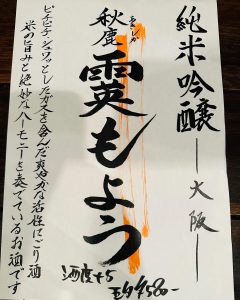 純米吟醸 ― 大阪 ―
秋鹿 霙もよう
あきしか
ピチピチ、シュワッとしたガスを含んだ爽やかな活性にごり酒
米の旨みと絶妙なハーモニーを奏でているお酒です
酒度+5